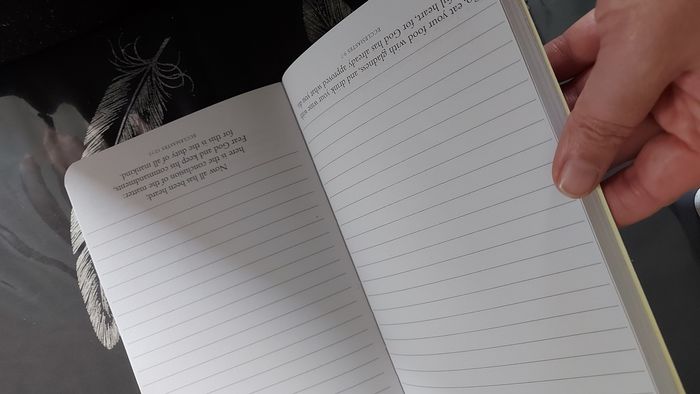 eat your food with gladness, and drink your wine with
heart, for God has already approved what you do
ECCLESIASTES 9:7
Now all has been heard;
here is the conclusion of the matter:
Fear God and keep his commandments,
for this is the duty of all mankind.
ECCLESIASTES 12:13